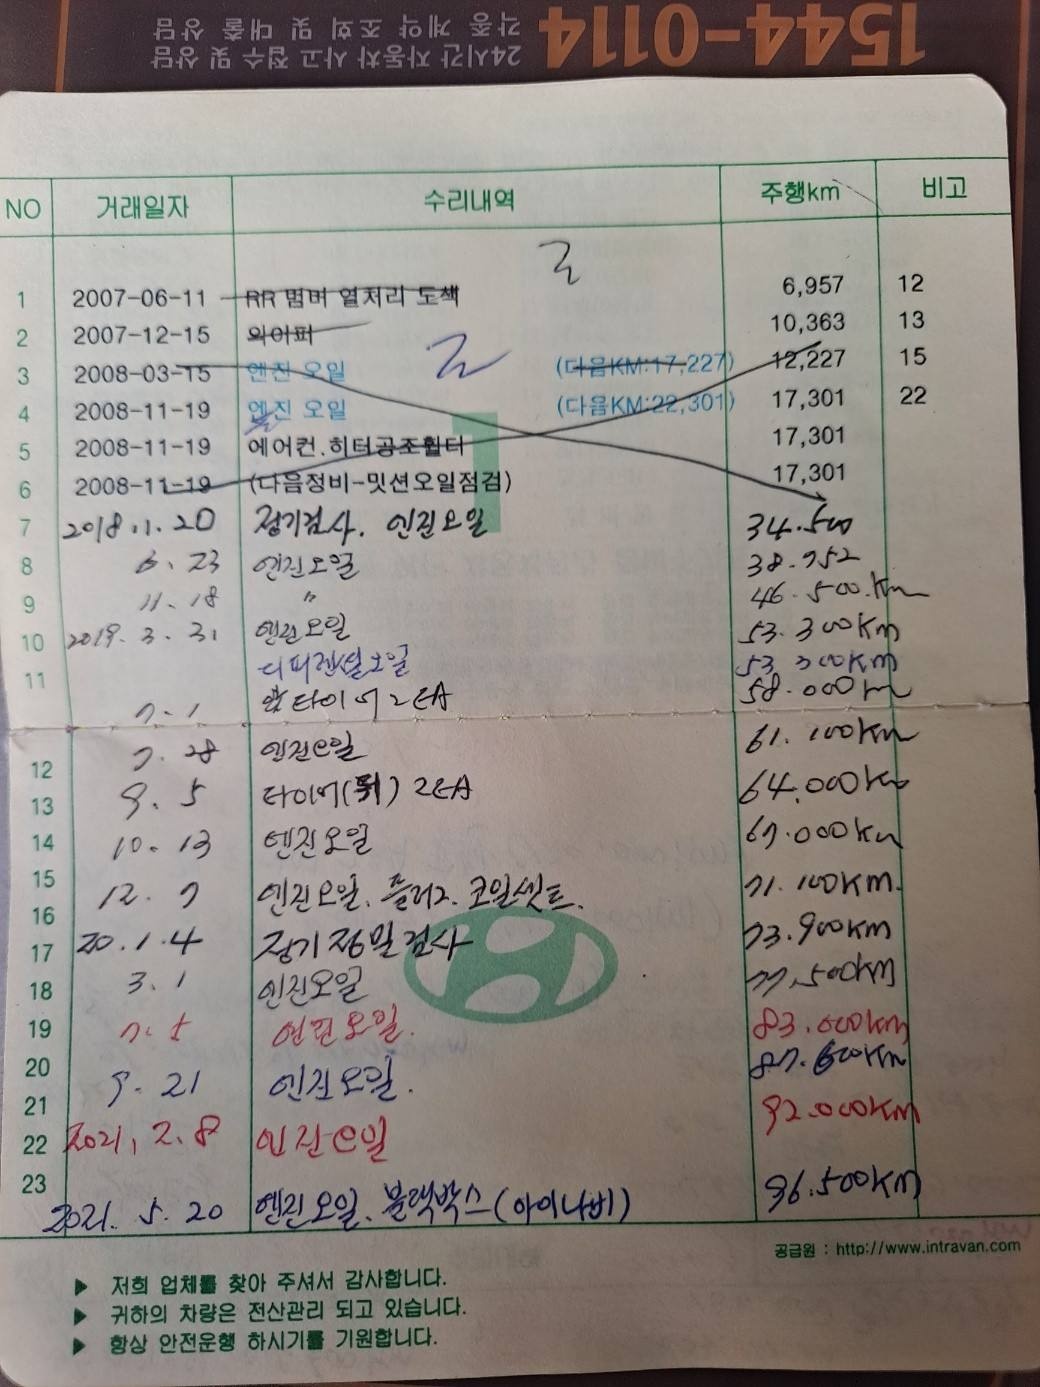 1544-0114
24시간 자동차 사고 접수 및 상담
각종 계약 조회 및 대출 상담
NO 거래일자 수리내역 주행km 비고
1 2007-06-11 RR 멤버 열처리 도색 6,957 12
2 2007-12-15 와이퍼 10,363 13
3 2008-03-15 엔진 오일 (다음KM:17,227) 12,227 15
4 2008-11-19 엔진 오일 (다음KM:22,301) 17,301 22
5 2008-11-19 에어컨.히터공조휠터 17,301
6 2008-11-19 (다음정비-밋션오일점검) 17,301
7 2018.1.20 정기검사. 엔진오일 34.500
8 6. 23 엔진오일 38.952
9 11. 18 〃 46.500.Km
10 2019. 3. 31 엔진오일 53.300KM
디피런셜오일 53.300KM
11 7. 1 앞타이어 2EA 58.000Km
12 7. 28 엔진오일 61.100Km
13 9. 5 타이어(뒤) 2EA 64.000Km
14 10. 13 엔진오일 67.000Km
15
16 12. 7 엔진오일. 플러그. 코일셋트. 71.100KM.
17 20.1.4 정기정밀검사 73.900KM
18 3. 1 엔진오일 77,500KM
19 7. 5 엔진오일. 83.000KM
20 9. 21 엔진오일. 87.600KM
21
22 2021, 2.8 엔진오일 92.000KM
23 2021. 5. 20 엔진오일. 블랙박스(아이나비) 96.500KM
공급원 : http://www.intravan.com
▶ 저희 업체를 찾아 주셔서 감사합니다.
▶ 귀하의 차량은 전산관리 되고 있습니다.
▶ 항상 안전운행 하시기를 기원합니다.